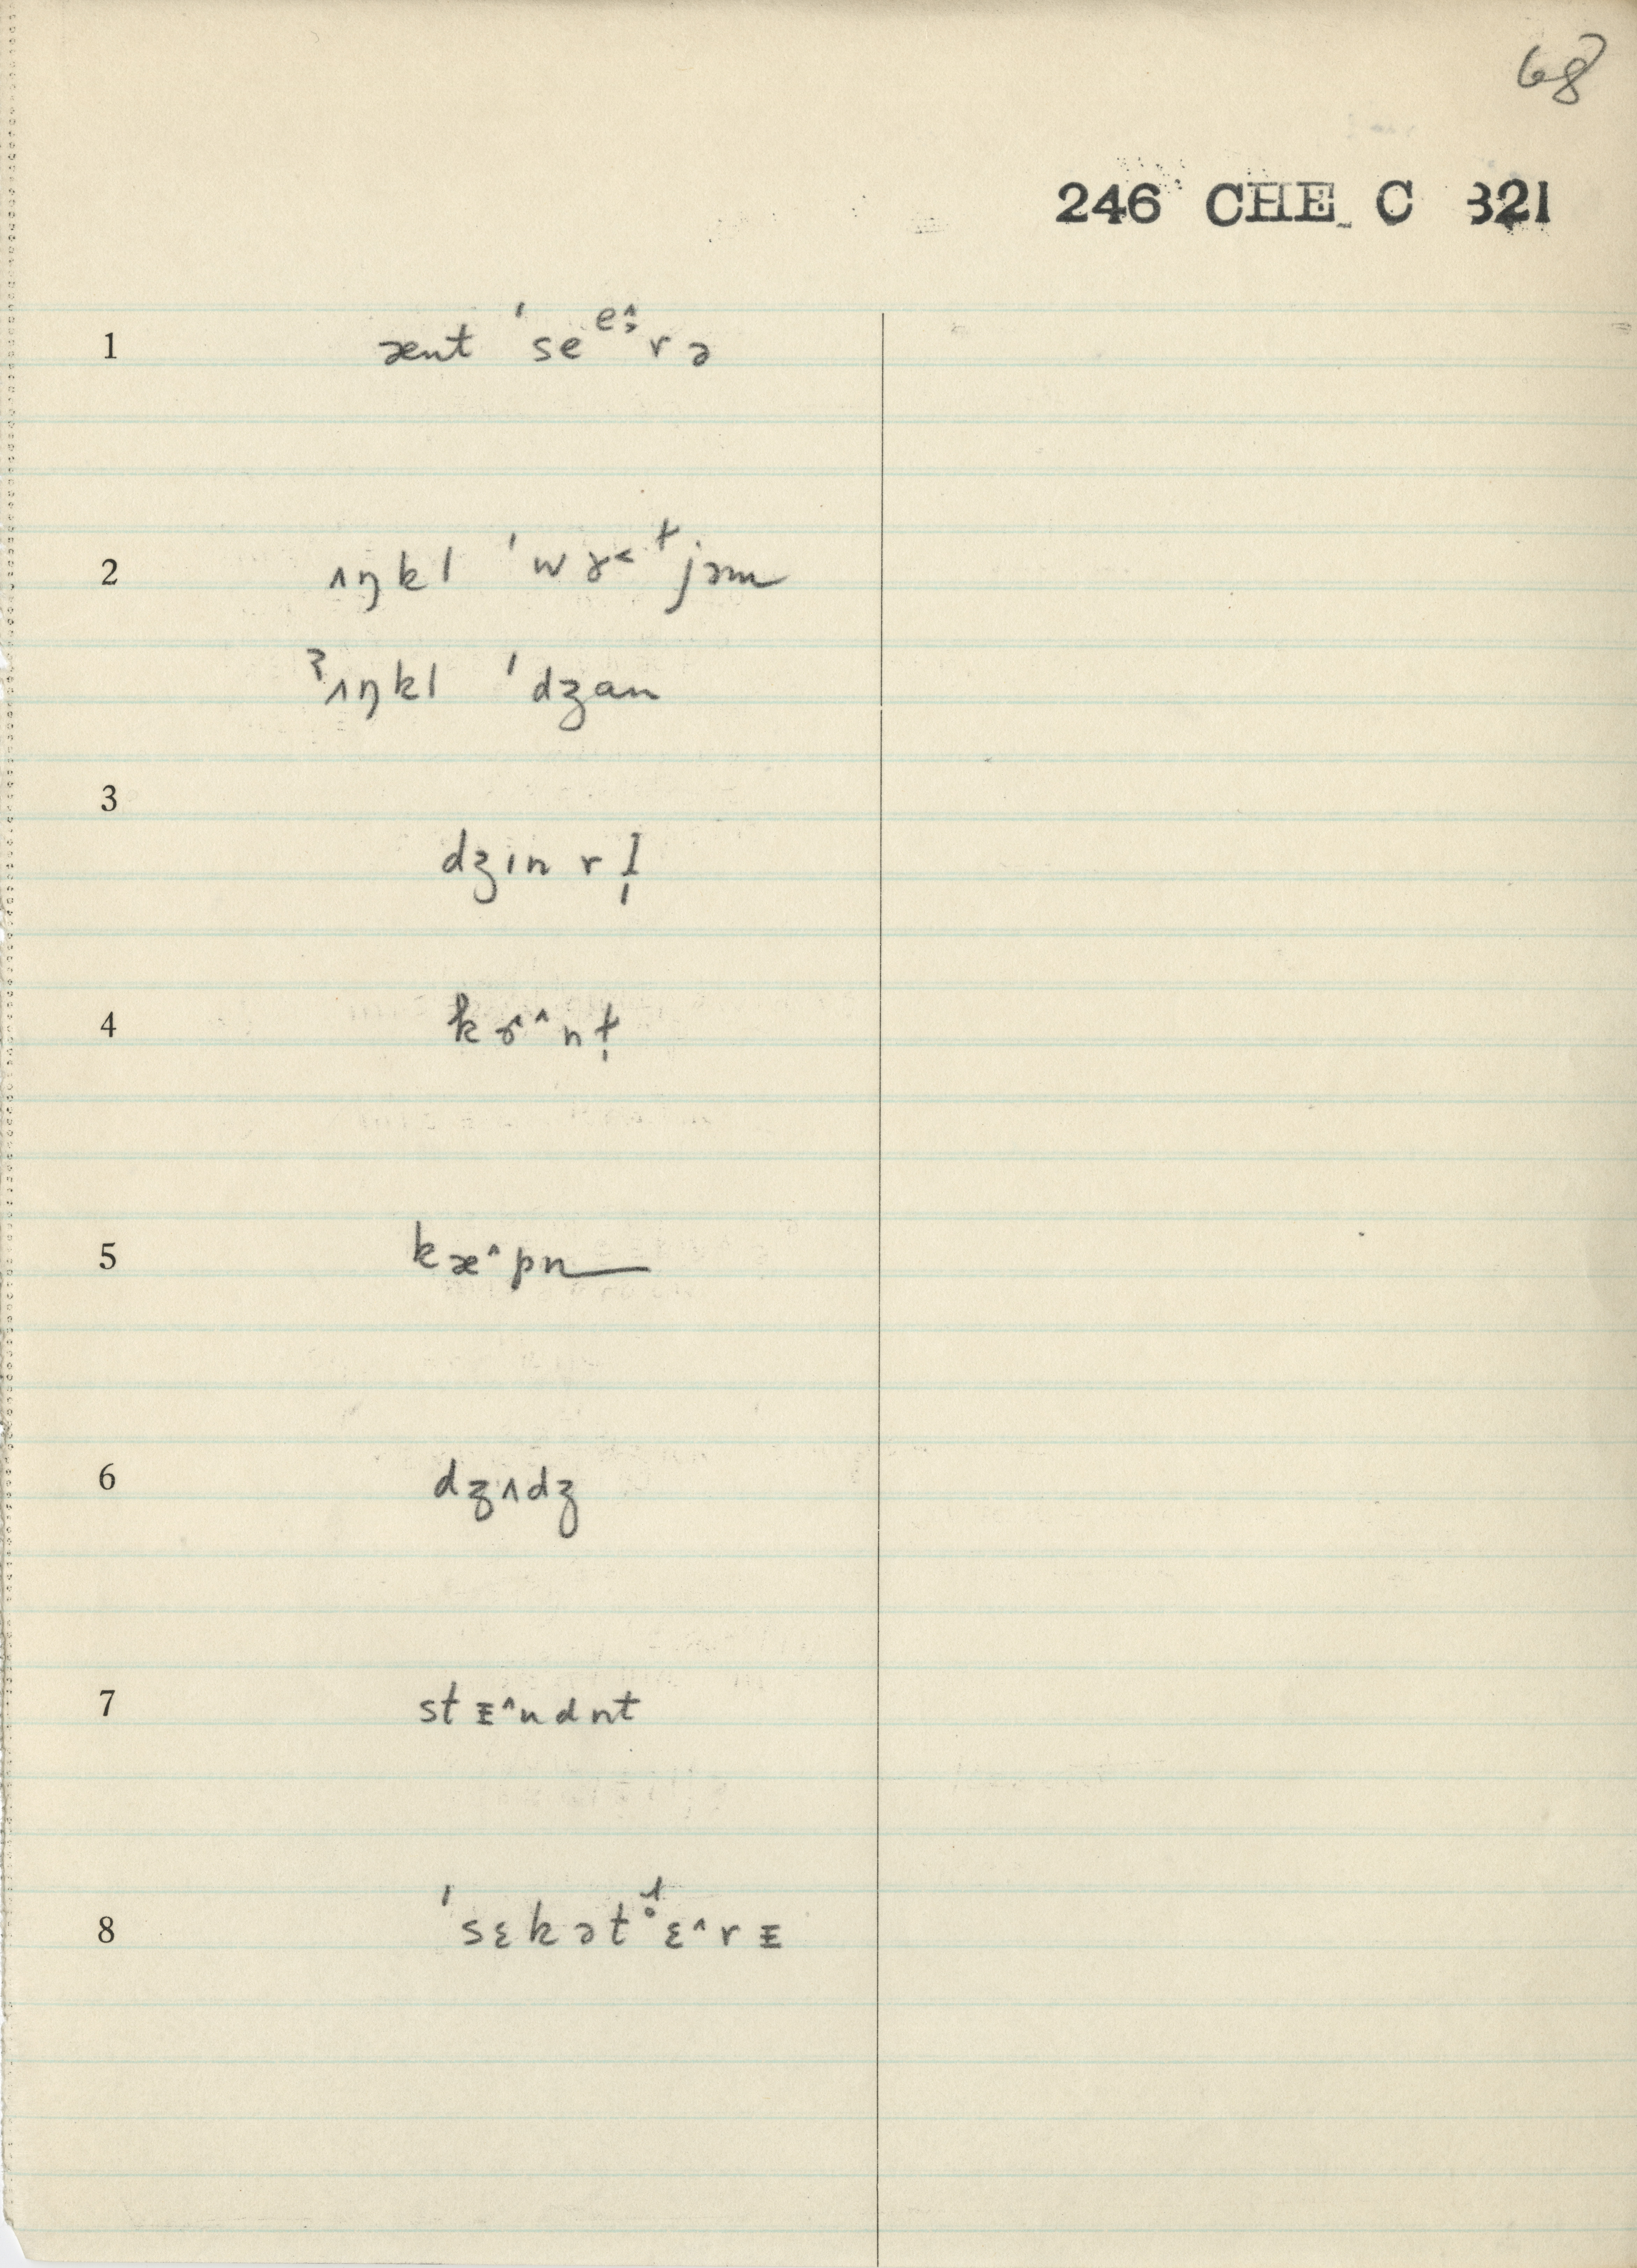 68
246 CHE C 321
1 ænt ˈseᵉ˄rə
2 ʌŋkl ˈwɤ˂ɫjəm
ˀʌŋkl ˈdʒan
3 dʒɪn rɪ̩
4 kɤ˄nɫ̩
5 kæ˄pn
6 dʒʌdʒ
7 stᴇ˄ndnt
8 ˈsɛkətɛ˄rᴇ